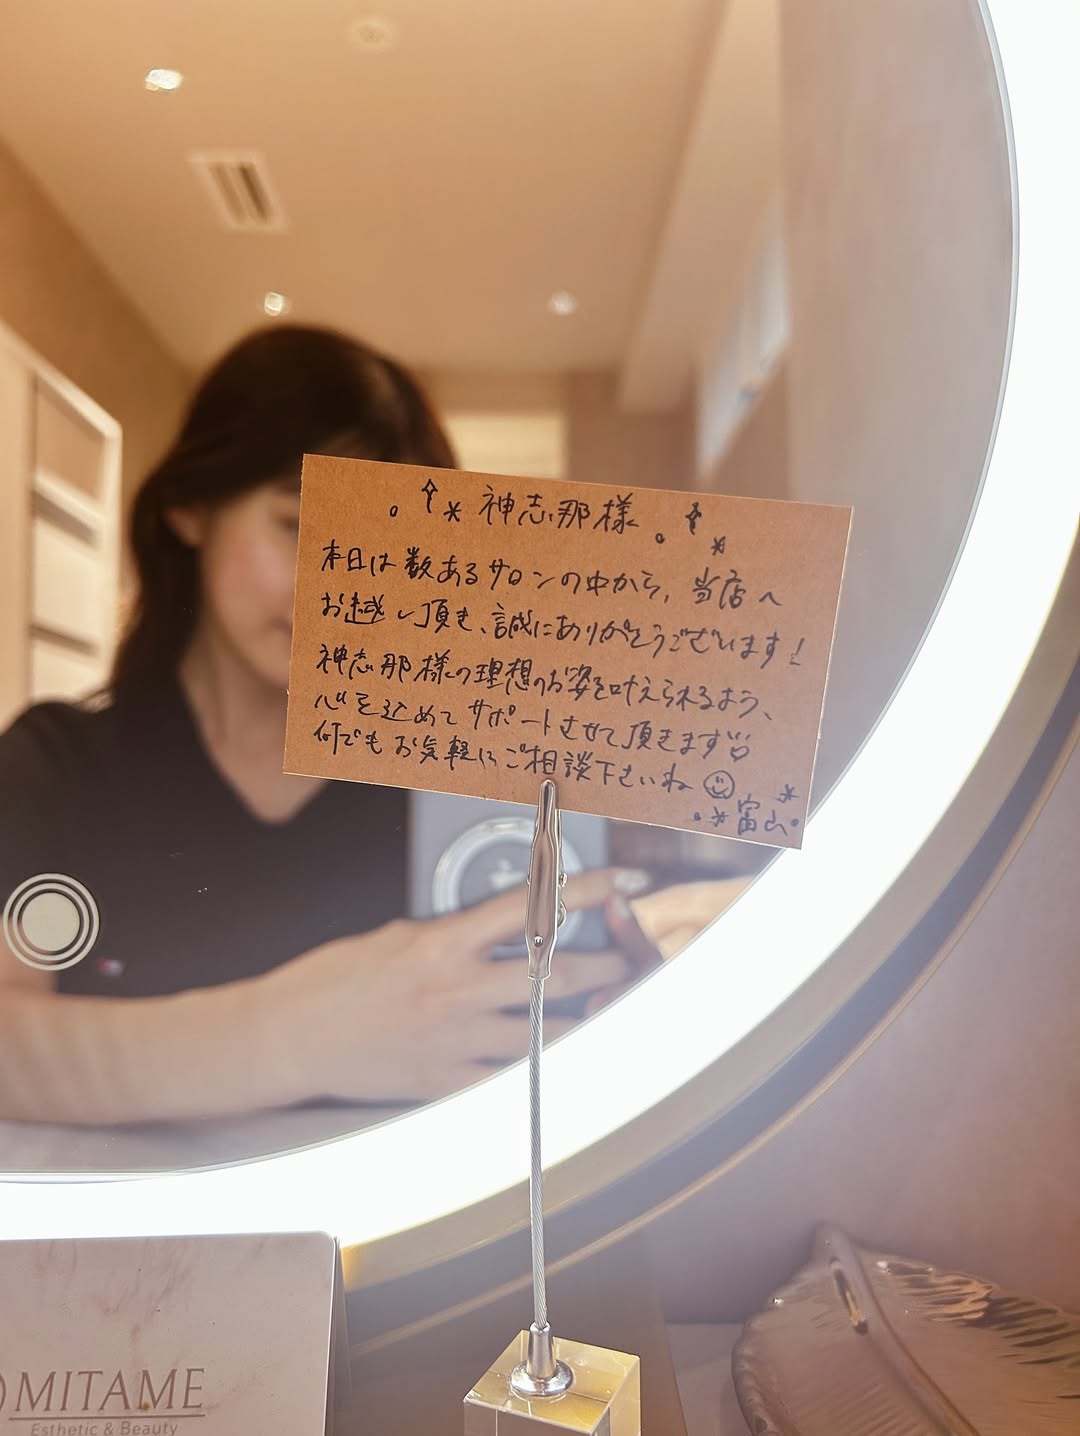 神志那様
本日は数あるサロンの中から、当店へ
お越し頂き、誠にありがとうございます!
神志那様の理想のお姿を叶えられるよう、
心を込めてサポートさせて頂きます
何でもお気軽にご相談下さいね
富山
MITAME
Esthetic & Beauty